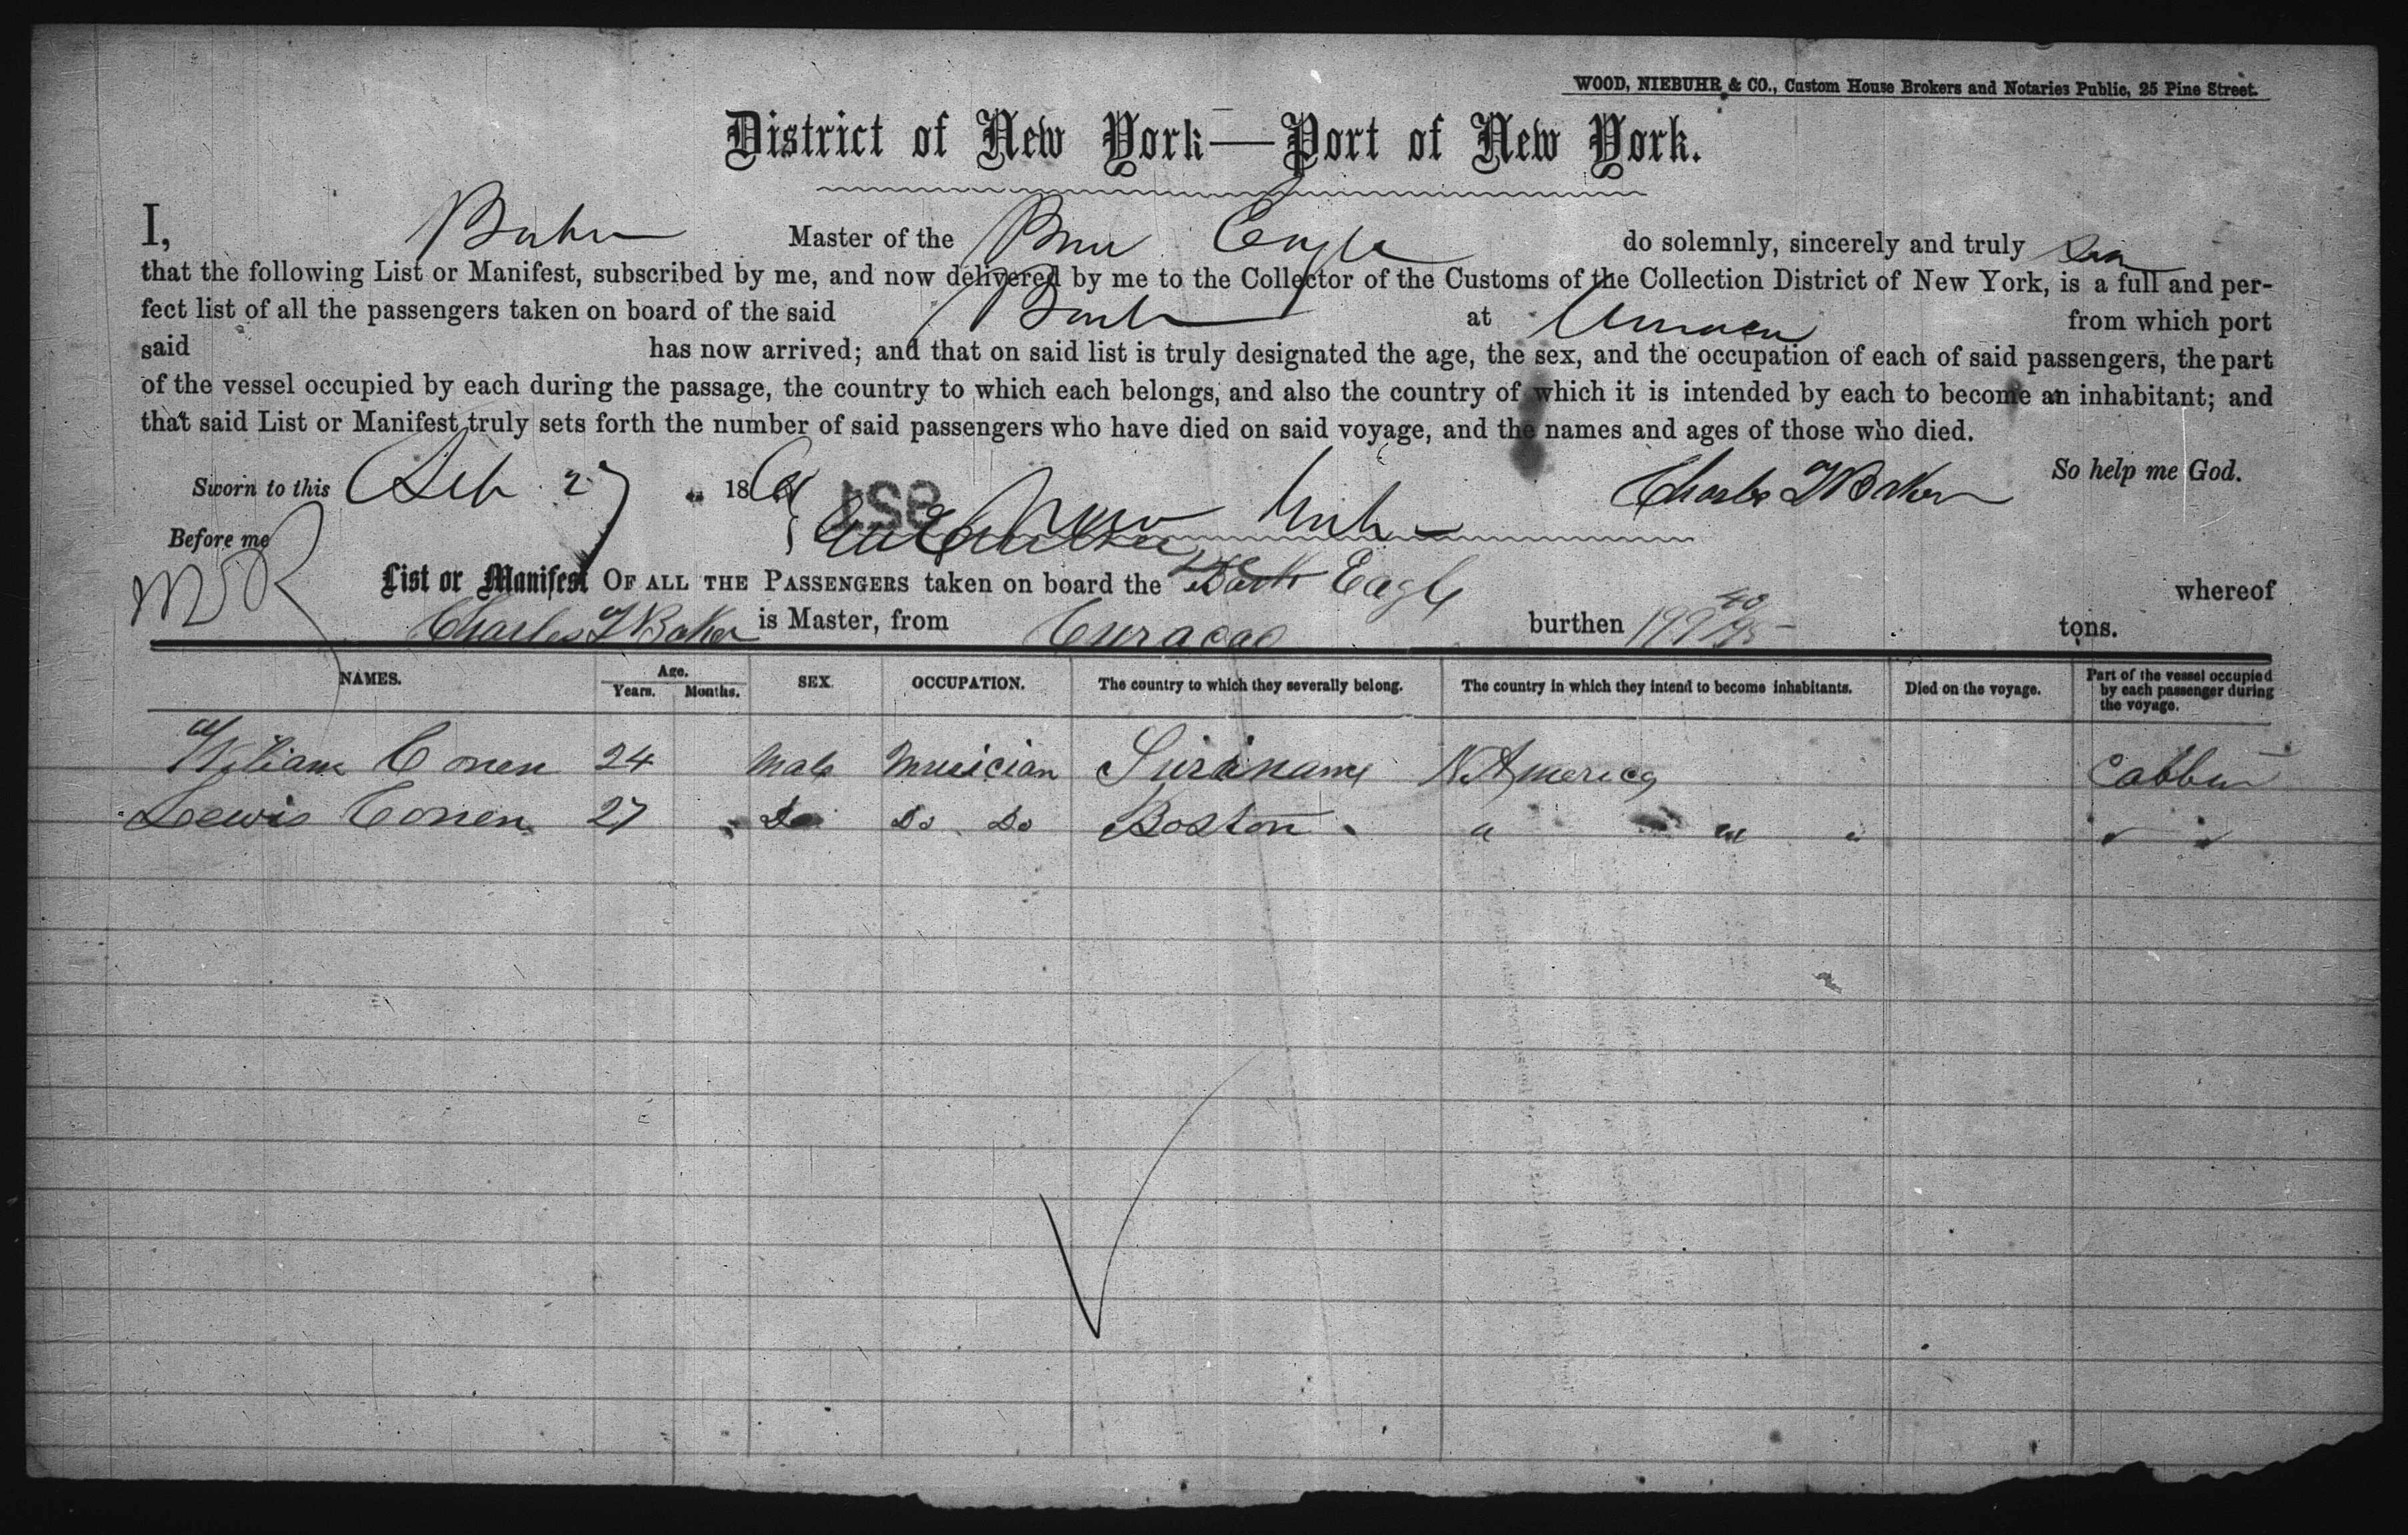 WOOD, NIEBUHR & CO., Custom House Brokers and Notaries Public, 25 Pine Street.
District of New York—Port of New York.
I, Baker Master of the Eagle do solemnly, sincerely and truly
that the following List or Manifest, subscribed by me, and now delivered by me to the Collector of the Customs of the Collection District of New York, is a full and per-
fect list of all the passengers taken on board of the said Bark at Curacao from which port
said has now arrived; and that on said list is truly designated the age, the sex, and the occupation of each of said passengers, the part
of the vessel occupied by each during the passage, the country to which each belongs, and also the country of which it is intended by each to become an inhabitant; and
that said List or Manifest truly sets forth the number of said passengers who have died on said voyage, and the names and ages of those who died.
So help me God.
Sworn to this 27 186 Charles Baker
Before me
List or Manifest OF ALL THE PASSENGERS taken on board the Bark Eagle whereof
Charles Baker is Master, from Curacao burthen 199 40/95 tons.
NAMES. Age. Years. Months. SEX. OCCUPATION. The country to which they severally belong. The country in which they intend to become inhabitants. Died on the voyage. Part of the vessel occupied by each passenger during the voyage.
William Conen 24 Male Musician Suriname N America Cabbin
Lewis Conen 27 Do Do Do Boston " " "